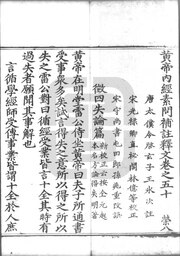 黃帝內經素問補註釋文卷之五十 營八
唐太僕令啓玄子王冰次註
宋光祿卿直秘閣林億等校正
宋守尚書屯田郎孫兆重改誤
徵四失論篇 新校正云按全元起本名方論得失明著
黃帝在明堂雷公侍坐黃帝曰夫子所通書
受事衆多矣試言得失之意所以得之所以
失之雷公對曰循經受業皆言十全其時有
過失者願聞其事解也
言循學經師受傳事業皆謂十全於人庶